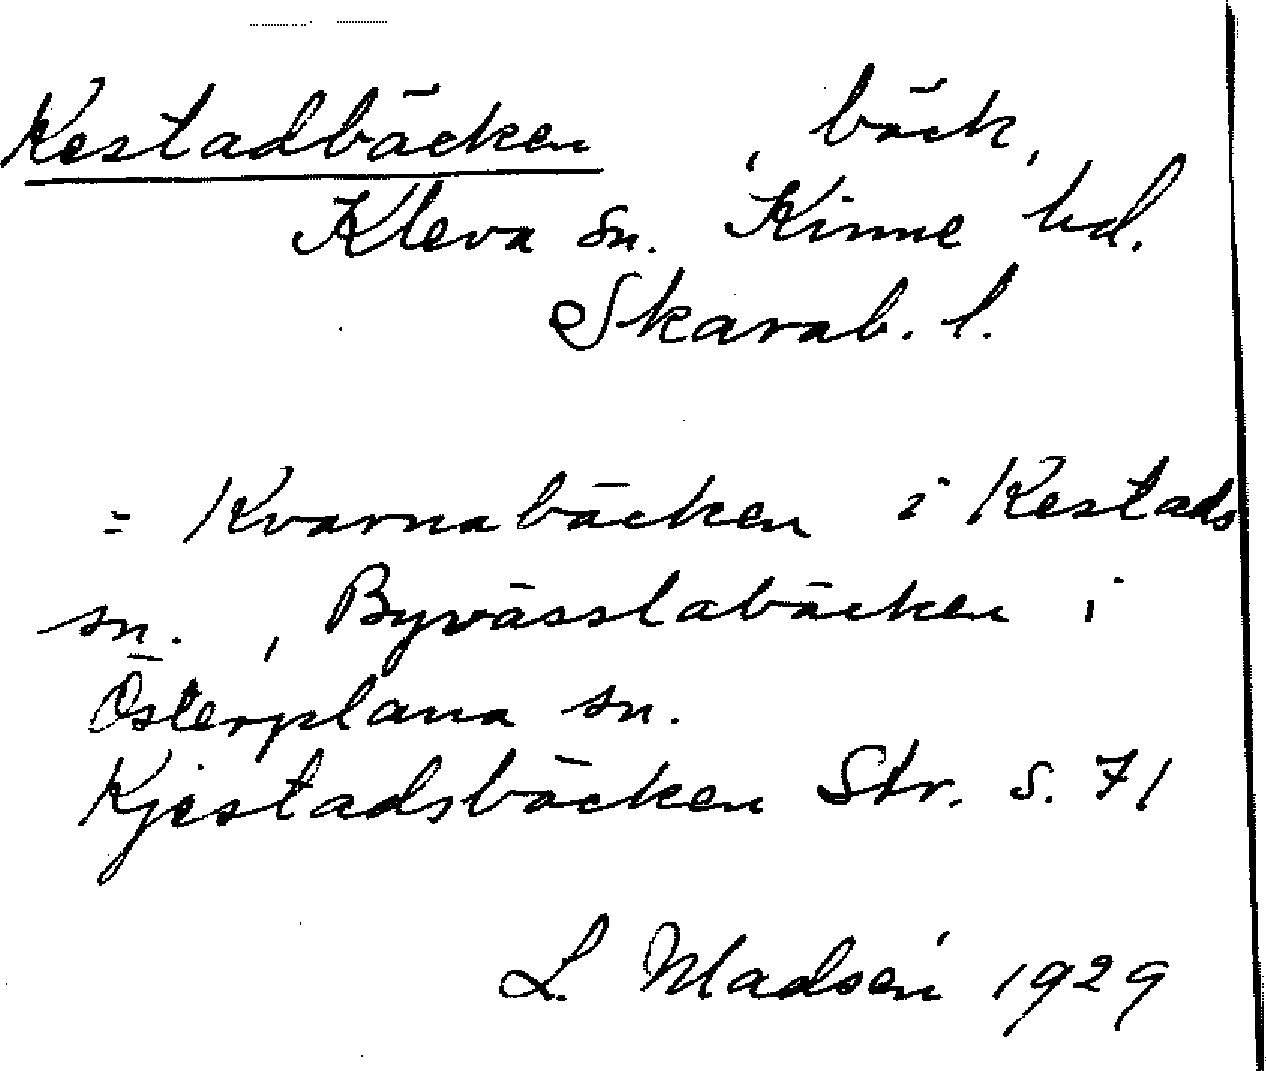 Kestadbäcken , bäck,
Kleva sn. Kinne hd.
Skarab. l.
= Kvarnabäcken i Kestads
sn. , Byvässlabäcken i
Österplana sn.
Kjestadsbäcken Str. s. 71
L. Madsen 1929